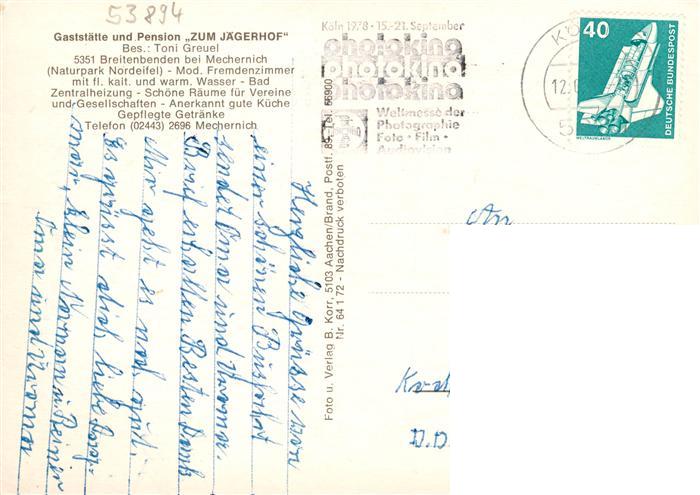 53894
Gaststätte und Pension „ZUM JÄGERHOF"
Bes.: Toni Greuel
5351 Breitenbenden bei Mechernich
(Naturpark Nordeifel) - Mod. Fremdenzimmer
mit fl. kalt. und warm. Wasser - Bad
Zentralheizung - Schöne Räume für Vereine
und Gesellschaften - Anerkannt gute Küche
Gepflegte Getränke
Telefon (02443) 2696 Mechernich
Herzliche Grüsse von
einer schönen Busfahrt
sendet Oma und
Brief erhalten Besten Dank
Mir geht es noch gut.
Es grüsst dich liebe
klein
Oma und
Foto u. Verlag B. Korr, 5103 Aachen/Brand, Postf. 89, Tel. 56900
Nr. 64 1 72 - Nachdruck verboten
Köln 1978 · 15.-21. September
photokina
photokina
photokina
Weltmesse der
Photographie
Foto · Film ·
Audiovision
KÖ
12.
5
40
DEUTSCHE BUNDESPOST
WELTRAUMLABOR
An
D.D.